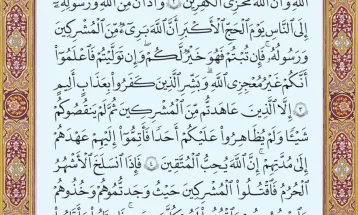 ٱللَّهِ وَأَنَّ ٱللَّهَ مُخۡزِى ٱلۡكَٰفِرِينَ ۝ وَأَذَٰنٞ مِّنَ ٱللَّهِ وَرَسُولِهِۦٓ
إِلَى ٱلنَّاسِ يَوۡمَ ٱلۡحَجِّ ٱلۡأَكۡبَرِ أَنَّ ٱللَّهَ بَرِيٓءٞ مِّنَ ٱلۡمُشۡرِكِينَ
وَرَسُولُهُۥۚ فَإِن تُبۡتُمۡ فَهُوَ خَيۡرٞ لَّكُمۡۖ وَإِن تَوَلَّيۡتُمۡ فَٱعۡلَمُوٓاْ
أَنَّكُمۡ غَيۡرُ مُعۡجِزِي ٱللَّهِۗ وَبَشِّرِ ٱلَّذِينَ كَفَرُواْ بِعَذَابٍ أَلِيمٍ
۝٣ إِلَّا ٱلَّذِينَ عَٰهَدتُّم مِّنَ ٱلۡمُشۡرِكِينَ ثُمَّ لَمۡ يَنقُصُوكُمۡ
شَيۡـٔٗا وَلَمۡ يُظَٰهِرُواْ عَلَيۡكُمۡ أَحَدٗا فَأَتِمُّوٓاْ إِلَيۡهِمۡ عَهۡدَهُمۡ
إِلَىٰ مُدَّتِهِمۡۚ إِنَّ ٱللَّهَ يُحِبُّ ٱلۡمُتَّقِينَ ۝٤ فَإِذَا ٱنسَلَخَ ٱلۡأَشۡهُرُ
ٱلۡحُرُمُ فَٱقۡتُلُواْ ٱلۡمُشۡرِكِينَ حَيۡثُ وَجَدتُّمُوهُمۡ وَخُذُوهُمۡ